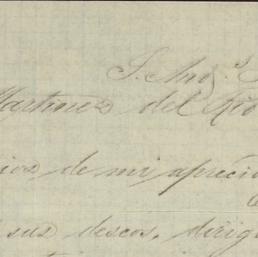 S. And.s
Martinez del Rio
de mi aprecio
sus deseos, dirig